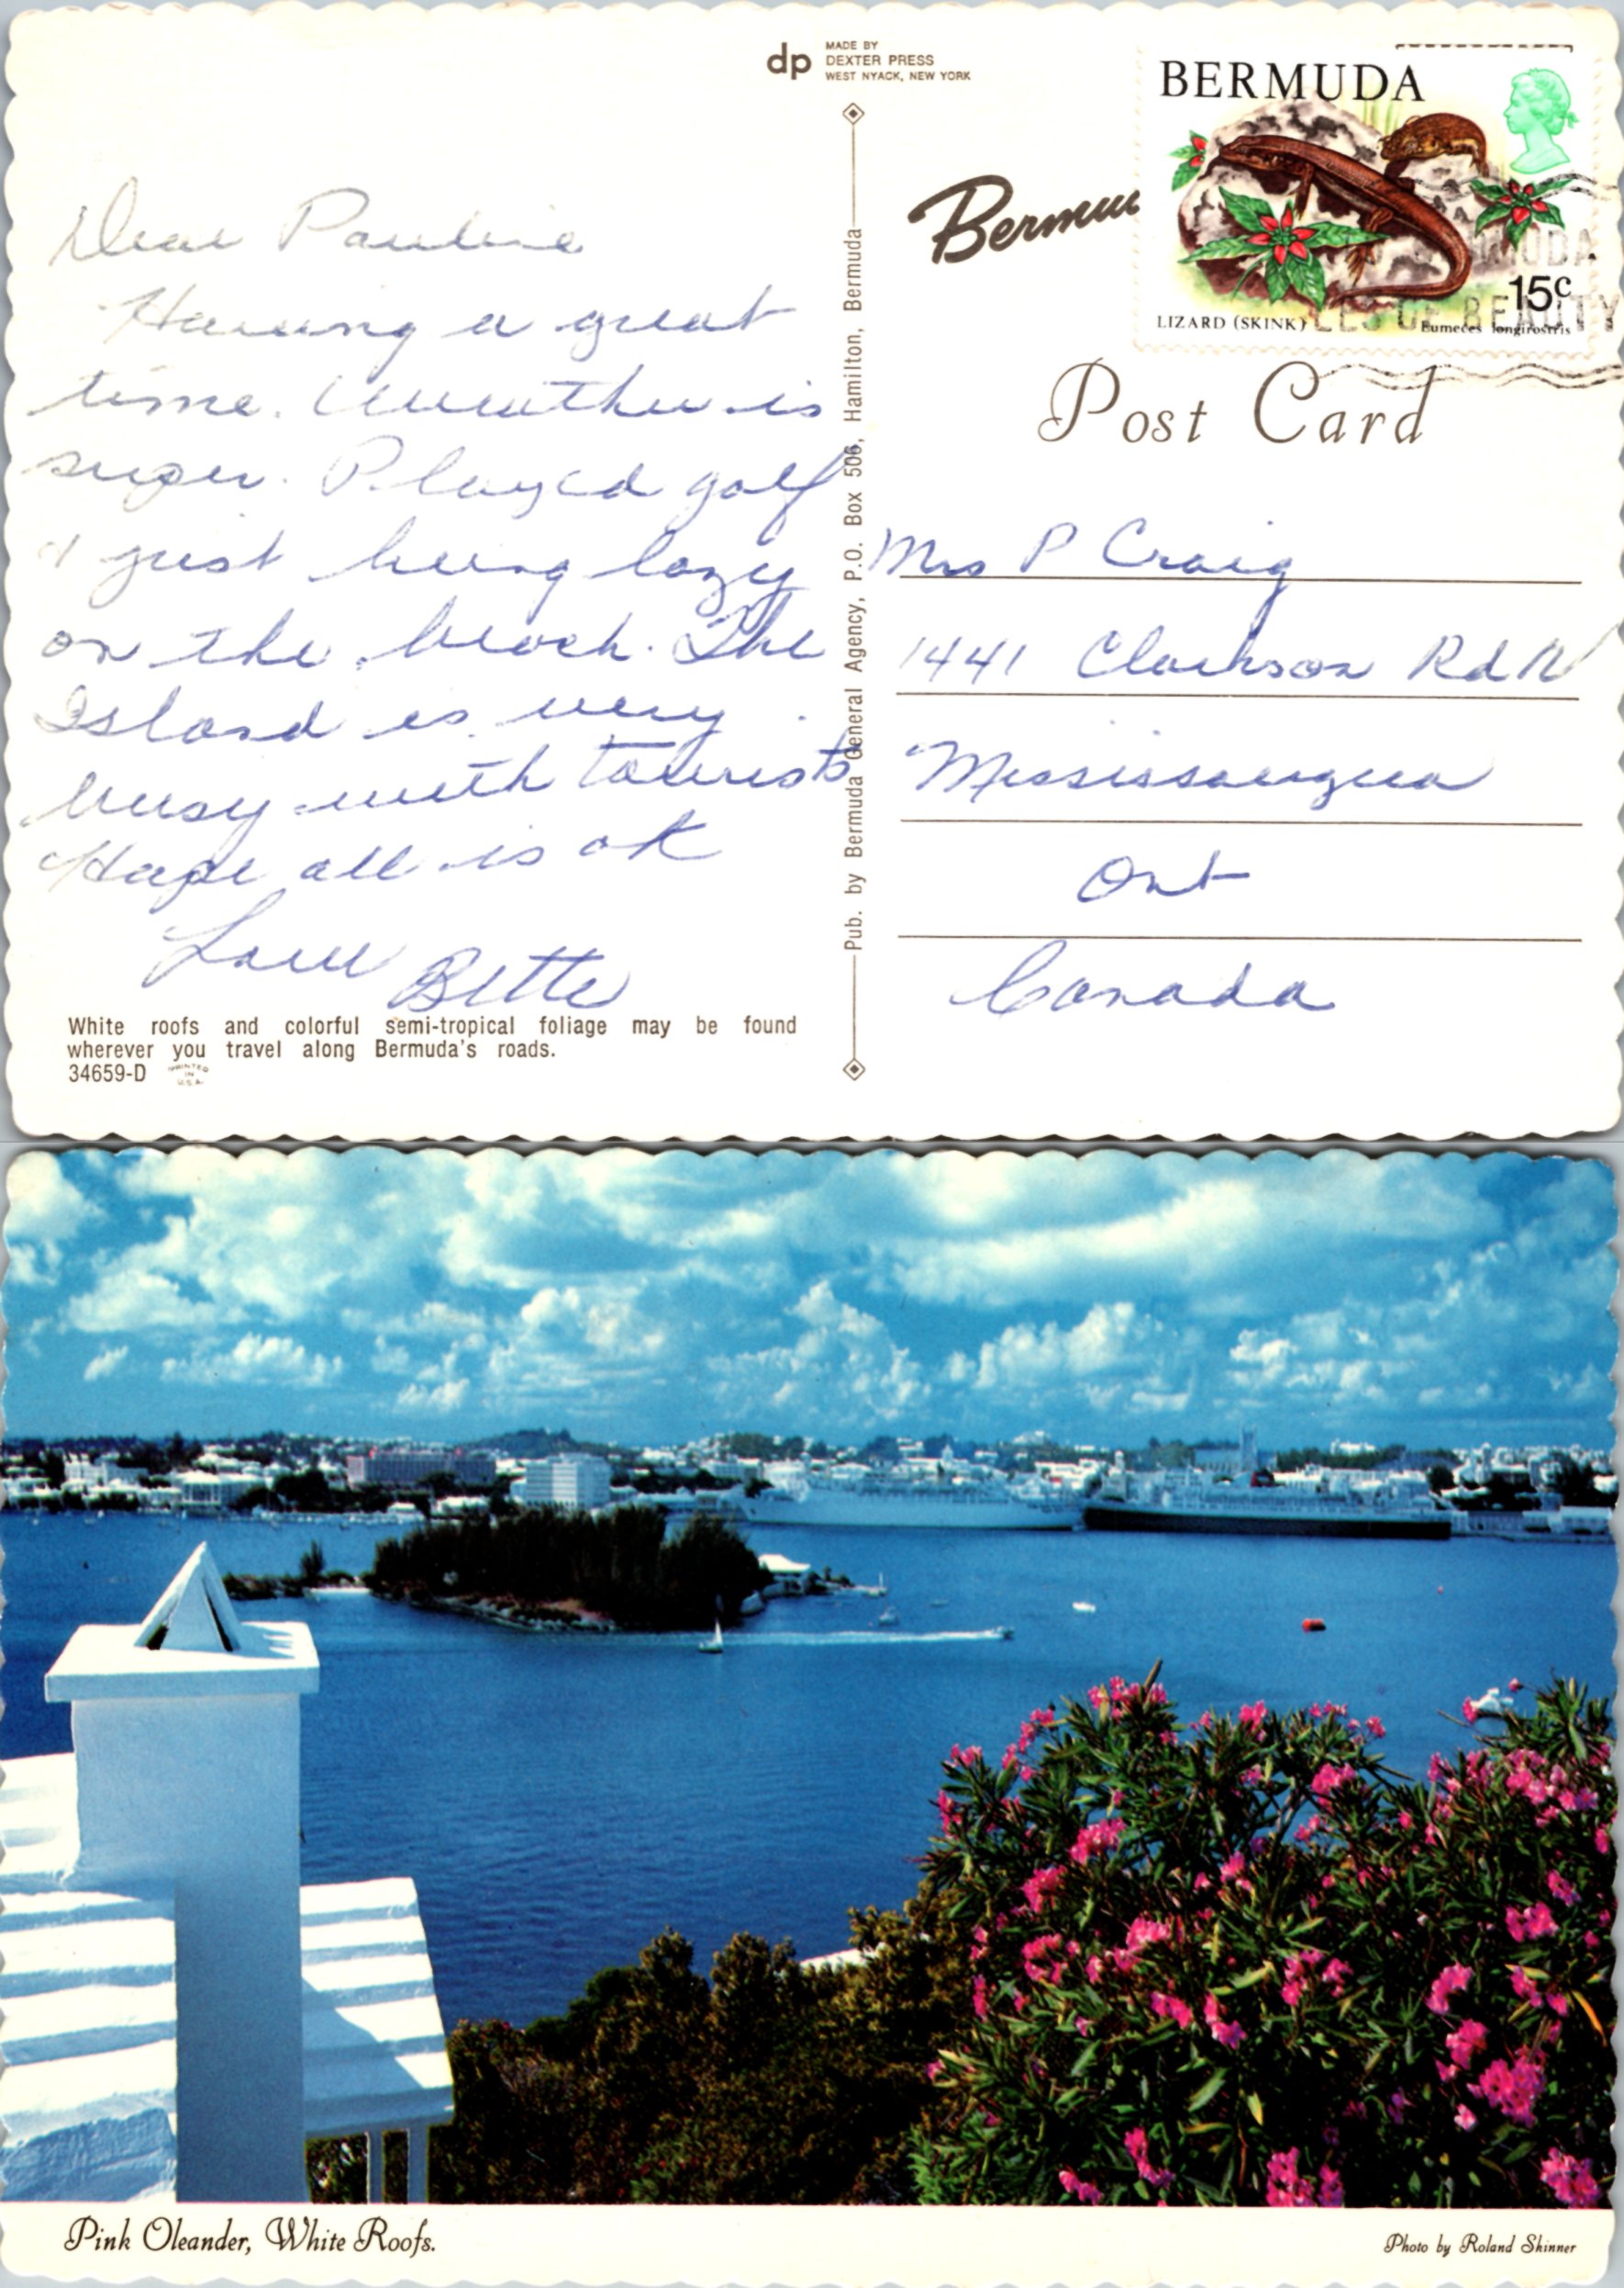 dp
MADE BY
DEXTER PRESS
WEST NYACK, NEW YORK
BERMUDA
LIZARD (SKINK)
15c
Eumeces longirostris
UDA
LES OF BEAUTY
Bermu
Post Card
Dear Pauline
Having a great
time. Weather is
super. Played golf
& just being lazy
on the beach. The
Island is very
busy with tourists
Hope all is ok
Love Bette
White roofs and colorful semi-tropical foliage may be found
wherever you travel along Bermuda's roads.
34659-D
PRINTED
IN
U.S.A.
Pub. by Bermuda General Agency, P.O. Box 506, Hamilton, Bermuda
Mrs P Craig
1441 Clarkson Rd N
Mississaugua
Ont
Canada
Pink Oleander, White Roofs.
Photo by Roland Skinner